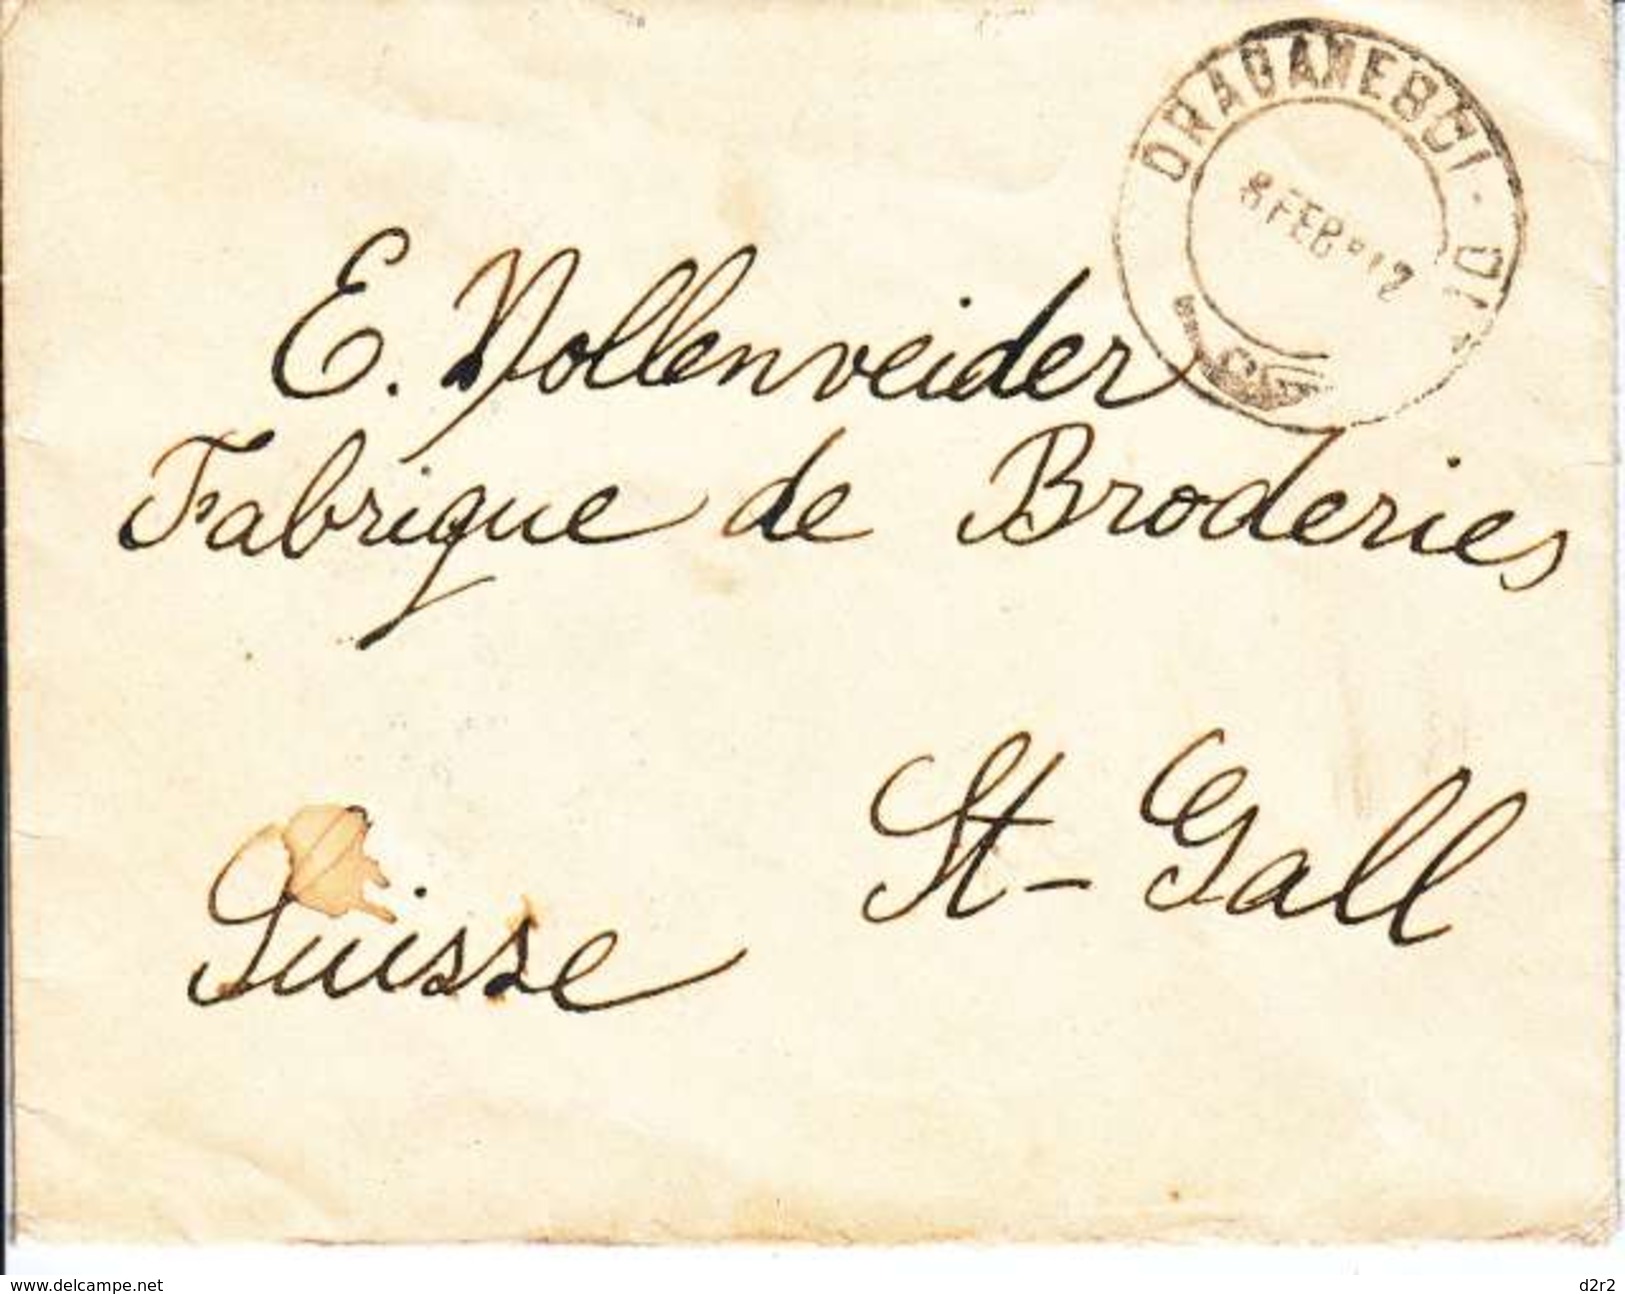 DRAGANESCI - OLT
8 FEB 912
E. Nollenveider
Fabrique de Broderies
St-Gall
Suisse
www.delcampe.net
d2r2